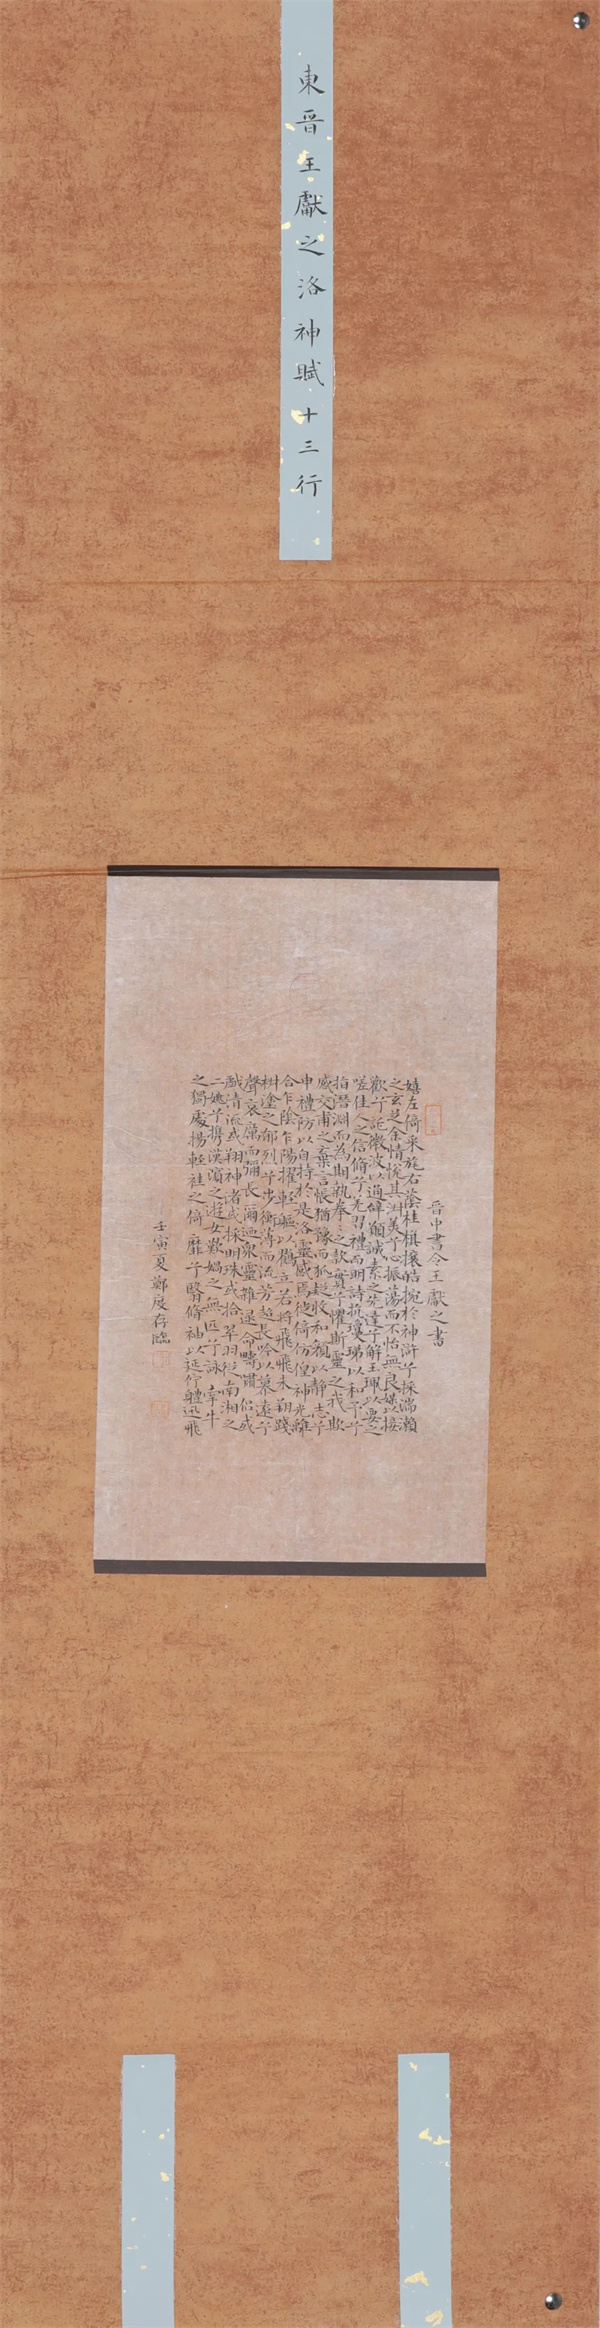 東晋王獻之洛神賦十三行
晋中書令王獻之書
嬉左倚采旄右蔭桂旗攘皓捥於神滸兮採湍瀨
之玄芝余情悅其淑美兮心振蕩而不怡無良媒以接
歡兮託微波以通辭願誠素之先達兮解玉珮以要之
嗟佳人之信脩兮羌習禮而明詩抗瓊珶以和予兮
指潛淵而為期執眷之款實兮懼斯靈之我欺
感交甫之棄言悵猶豫而狐疑收和顏以靜志兮
申禮防以自持於是洛靈感焉徙倚仿偟神光離
合乍陰乍陽擢輕軀以鶴立若將飛飛未翔踐
椒塗之郁烈兮步衡薄而流芳超長吟以慕遠兮
聲哀厲而彌長爾迺眾靈雜遝命疇嘯侶或
戲清流或翔神渚或採明珠或拾翠羽從南湘之
二姚兮攜漢濱之遊女歎媧之無匹兮詠牽牛
之獨處揚輕袿之倚靡兮翳脩袖以延佇體迅飛
壬寅夏鄭存臨